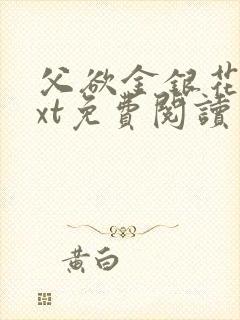 父欲金銀花
xt免費閱讀
黃白